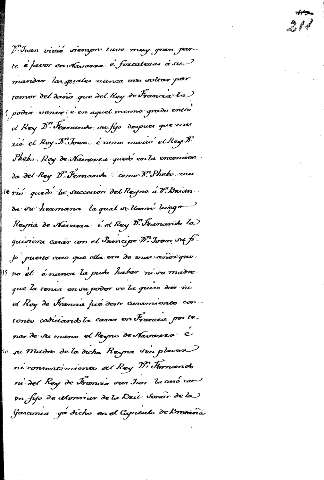 211
Dⁿ Juan vivió siempre tuvo muy gran par-
te é favor en Navarra é fortalezas á su
mandar las quales nunca una soltar por
temor del daño que del Rey de Francia la
podia venir: e en aquel mismo grado entró
el Rey Dⁿ Fernando su fijo despues que mu-
rió el Rey Dⁿ Juan. é como murió el Rey Dⁿ
Phebo, Rey de Navarra quedó en la encomien-
da del Rey Dⁿ Fernando: como Dⁿ Phebo mu-
rió quedó la succesion del Reyno á Dª
de su hermana la qual se llamó luego
Reyna de Navarra é el Rey Dⁿ Fernando la
quisiera casar con el Principe Dⁿ Juan su fi-
jo puesto caso que ella era de mas años que
no él é nunca la pudo haber ni su madre
que la tenia en su poder se la quiso dar ni
el Rey de Francia fué deste casamiento con-
tento cobdiciando la casar en Francia por te-
ner de su mano el Reyno de Navarra é
la Madre de la dicha Reyna sin placer
ni consentimiento del Rey Dⁿ Fernando
ni del Rey de Francia la casó con
un fijo de Monsiur de la Brit Señor de la
Gascueña ya dicho en el Capitulo de